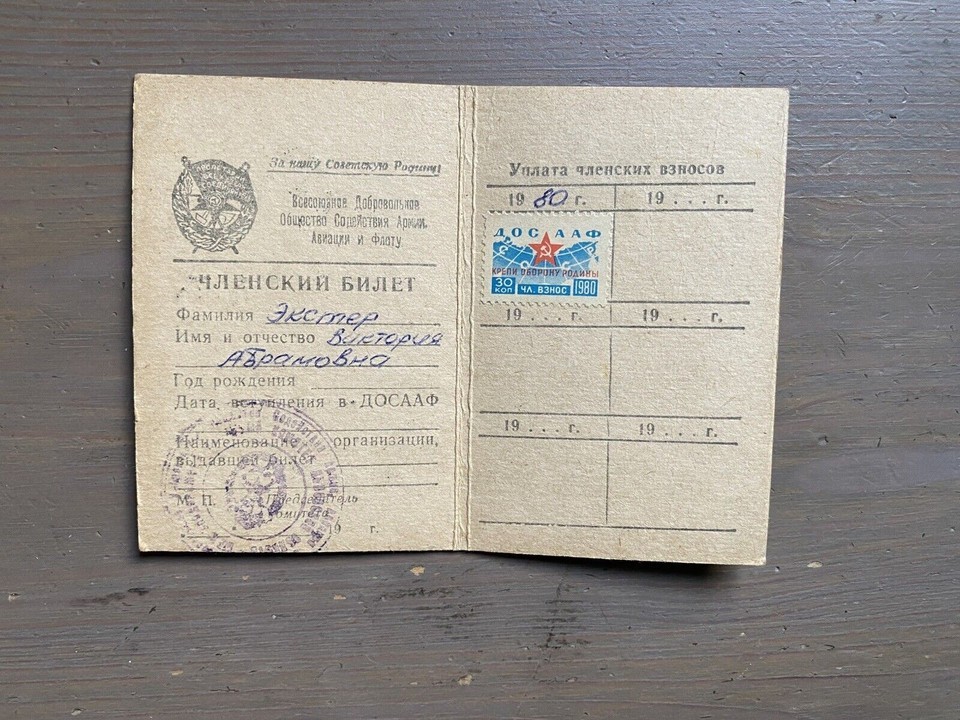 За нашу Советскую Родину!
Всесоюзное Добровольное
Общество Содействия Армии,
Авиации и Флоту
ЧЛЕНСКИЙ БИЛЕТ
Фамилия Экстер
Имя и отчество Виктория
Абрамовна
Год рождения
Дата вступления в ДОСААФ
Наименование организации,
выдавшей билет
М. П. Председатель
комитета
г.
Уплата членских взносов
19 80 г. 19 . . . г.
ДОСААФ
СССР
КРЕПИ ОБОРОНУ РОДИНЫ
30 КОП ЧЛ. ВЗНОС 1980
19 . . . г. 19 . . . г.
19 . . . г. 19 . . . г.